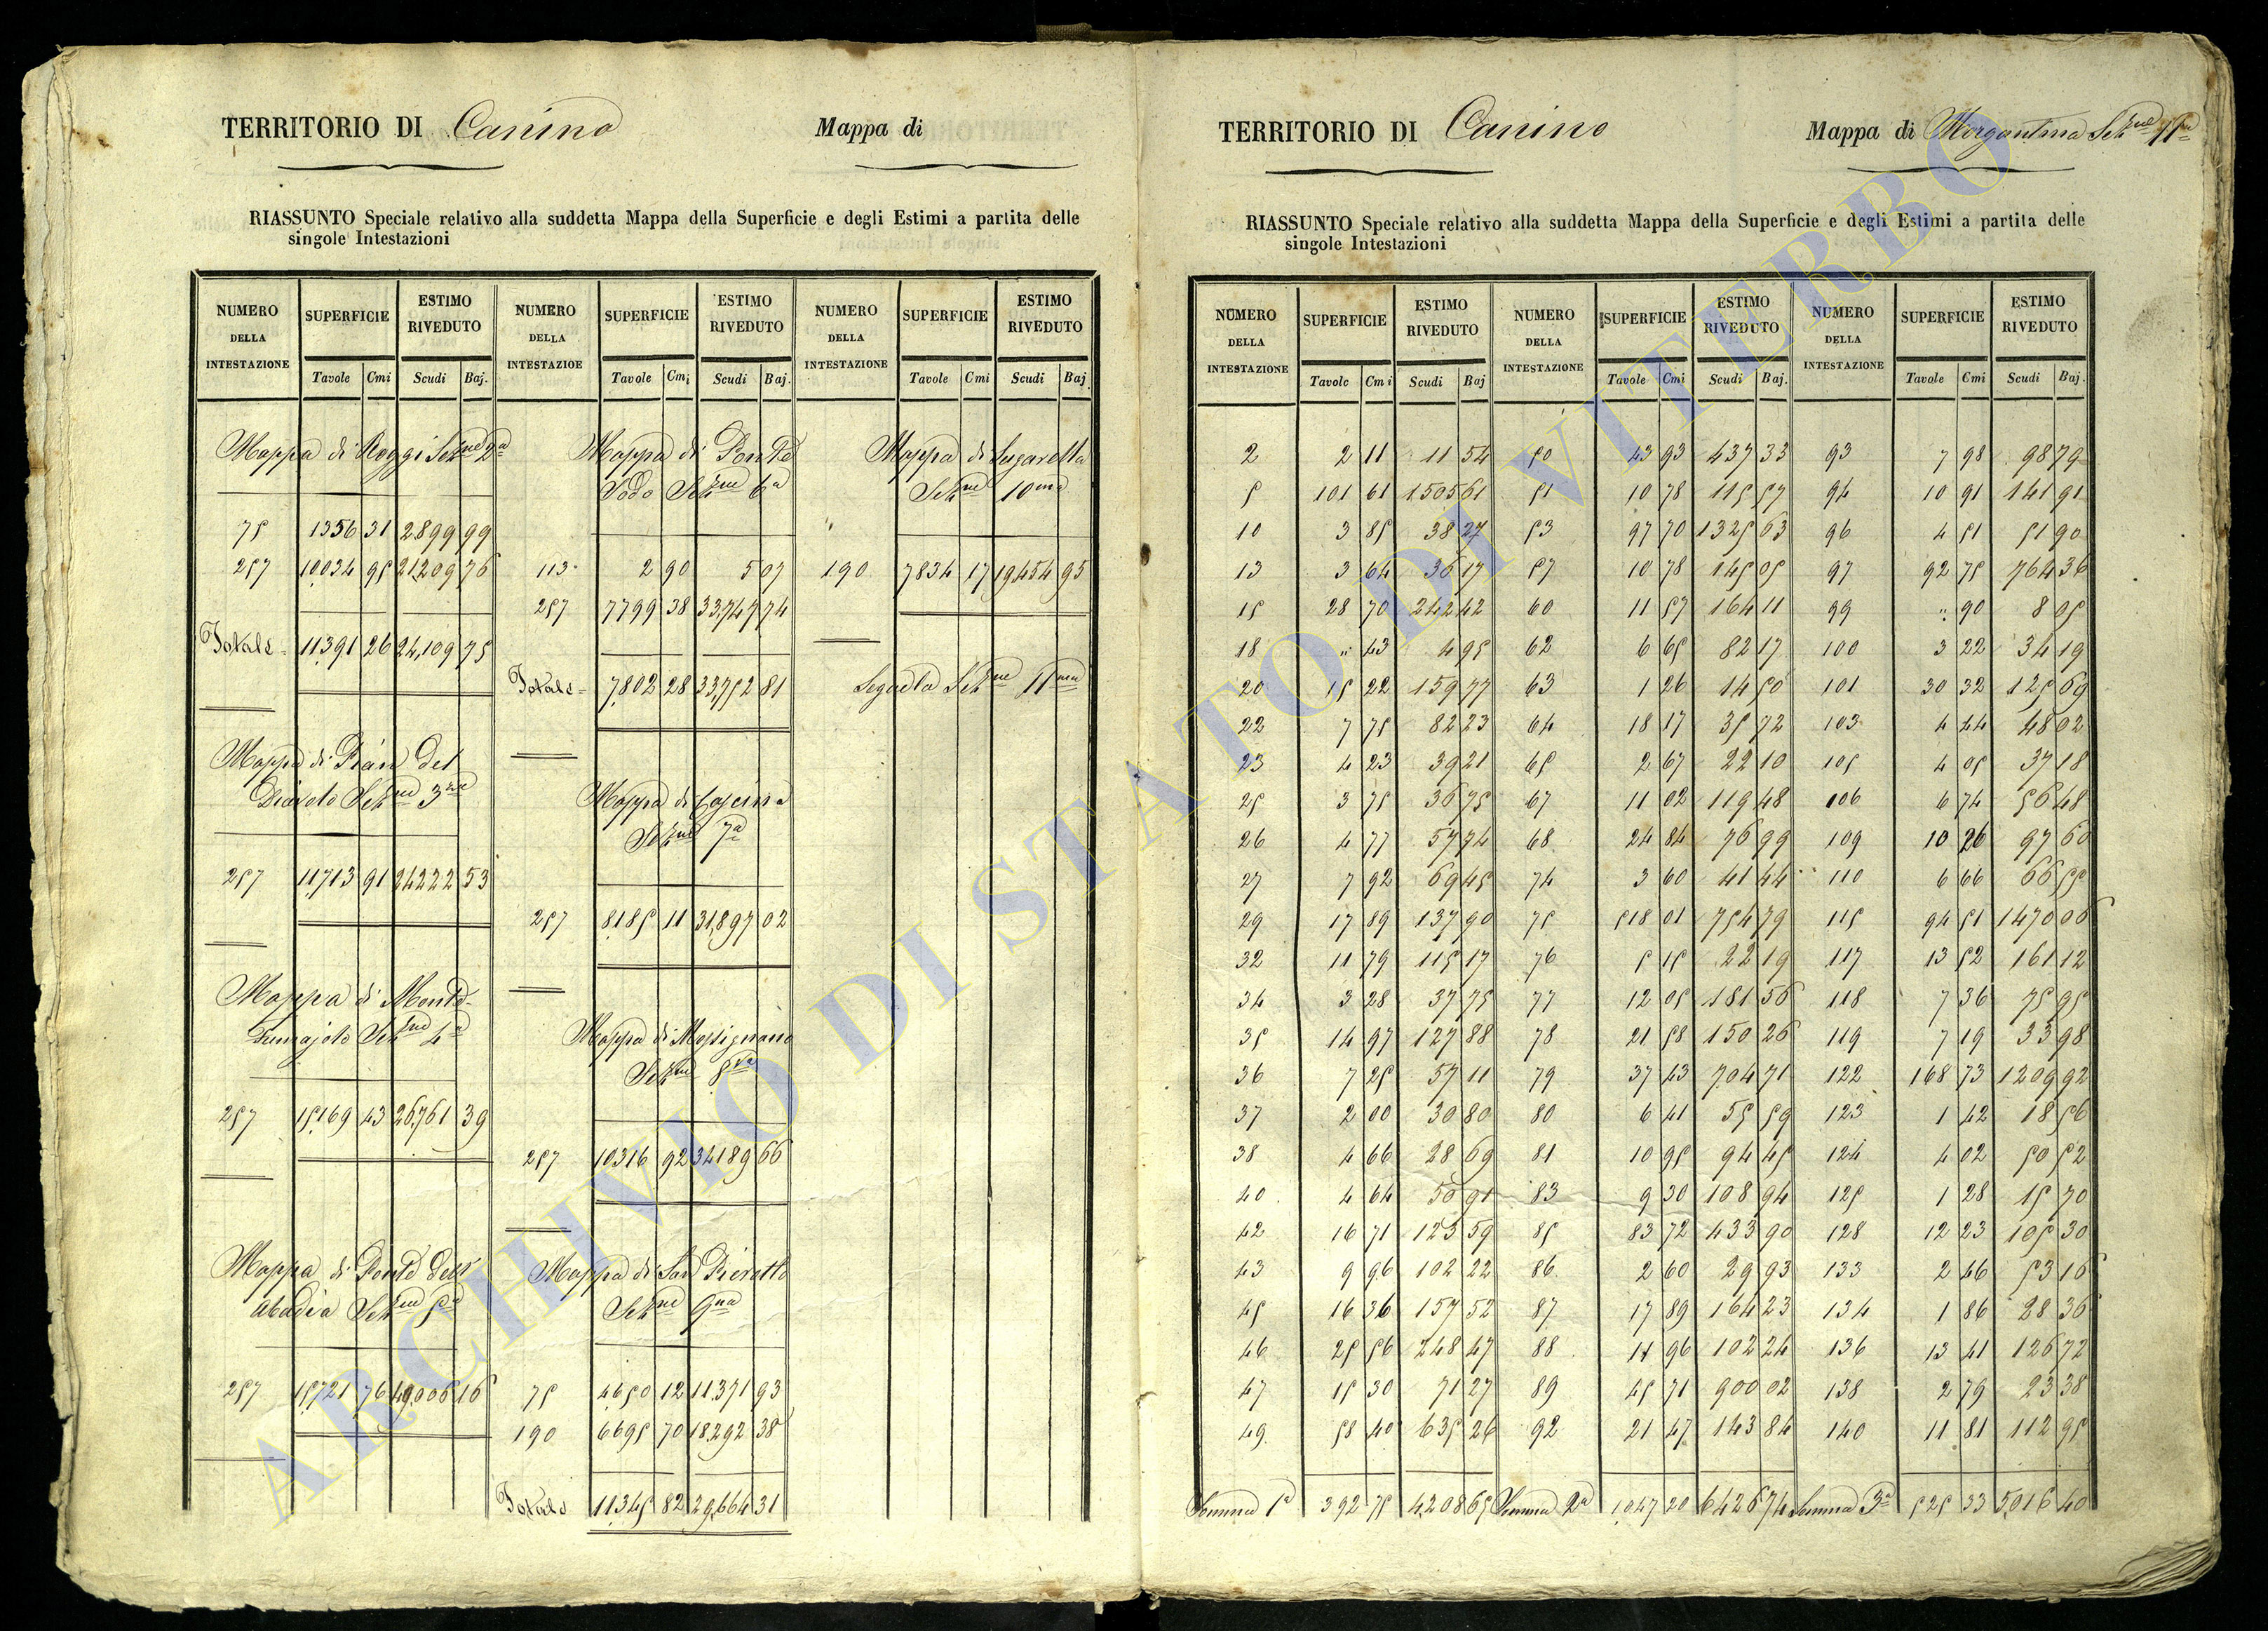 TERRITORIO DI Canino
Mappa di
RIASSUNTO Speciale relativo alla suddetta Mappa della Superficie e degli Estimi a partita delle
singole Intestazioni
NUMERO DELLA INTESTAZIONE SUPERFICIE ESTIMO RIVEDUTO NUMERO DELLA INTESTAZIOE SUPERFICIE ESTIMO RIVEDUTO NUMERO DELLA INTESTAZIONE SUPERFICIE ESTIMO RIVEDUTO
Tavole Cmi Scudi Baj. Tavole Cmi Scudi Baj. Tavole Cmi Scudi Baj.
Mappa di Roggi Sezne 2a
75 1356 31 2899 99
257 10034 95 21209 76
Totale 11391 26 24,109 75
Mappa di Pian del
Diavolo Sezne 3za
257 11713 91 24222 53
Mappa di Monte
Fumajolo Sezne 4a
257 15169 43 26,761 39
Mappa di Ponte dell'
Abadia Sezne 5a
257 15721 76 49,006 16
Mappa di Ponte
Sodo Sezne 6a
113 2 90 5 07
257 7799 38 33,747 74
Totale 7802 28 33,752 81
Mappa di Cascina
Sezne 7a
257 8185 11 31,897 02
Mappa di Massignano
Sezne 8va
257 10316 92 34189 66
Mappa di San Pieretto
Sezne 9na
75 4650 12 11,371 93
190 6695 70 18,292 38
Totale 11345 82 29,664 31
Mappa di Sugarella
Sezne 10ma
190 7834 17 19,454 95
Seguela Sezne 11ma
TERRITORIO DI Canino
Mappa di Morgantina Sezne 11ma
RIASSUNTO Speciale relativo alla suddetta Mappa della Superficie e degli Estimi a partita delle
singole Intestazioni
NUMERO DELLA INTESTAZIONE SUPERFICIE ESTIMO RIVEDUTO NUMERO DELLA INTESTAZIONE SUPERFICIE ESTIMO RIVEDUTO NUMERO DELLA INTESTAZIONE SUPERFICIE ESTIMO RIVEDUTO
Tavole Cmi Scudi Baj Tavole Cmi Scudi Baj. Tavole Cmi Scudi Baj.
2 2 11 11 54 50 43 93 437 33 93 7 98 98 79
5 101 61 1505 61 51 10 78 115 57 94 10 91 141 91
10 3 85 38 27 53 97 70 1325 63 96 4 51 51 90
13 3 64 36 17 57 10 78 145 05 97 92 75 764 36
15 28 70 242 42 60 11 57 164 11 99 " 90 8 05
18 " 43 4 95 62 6 65 82 17 100 3 22 34 19
20 15 22 159 77 63 1 26 14 50 101 30 32 125 69
22 7 75 82 23 64 18 17 35 72 103 4 44 48 02
23 4 23 39 21 65 2 67 22 10 105 4 05 37 18
25 3 75 36 75 67 11 02 119 48 106 6 74 56 48
26 4 77 57 74 68 24 84 76 99 109 10 26 97 60
27 7 92 69 45 74 3 60 41 44 110 6 66 66 55
29 17 89 137 90 75 518 01 754 79 115 94 51 1470 06
32 11 79 115 17 76 5 15 22 19 117 13 52 161 12
34 3 28 37 75 77 12 05 181 56 118 7 36 75 95
35 14 97 127 88 78 21 58 150 26 119 7 19 33 98
36 7 25 57 11 79 37 43 704 71 122 168 73 1209 92
37 2 00 30 80 80 6 41 55 59 123 1 42 18 56
38 4 66 28 69 81 10 95 94 45 124 4 02 50 52
40 4 64 50 91 83 9 30 108 94 125 1 28 15 70
42 16 71 123 59 85 83 72 433 90 128 12 23 105 30
43 9 96 102 22 86 2 60 29 93 133 2 46 53 16
45 16 36 157 52 87 17 89 164 23 134 1 86 28 36
46 25 56 248 47 88 11 96 102 24 136 13 41 126 72
47 15 30 71 27 89 45 71 900 02 138 2 79 23 38
49 58 40 635 26 92 21 47 143 84 140 11 81 112 95
Somma 1a 392 75 4,208 65 Somma 2a 1,047 20 6426 74 Somma 3a 525 33 5,016 40
ARCHIVIO DI STATO DI VITERBO